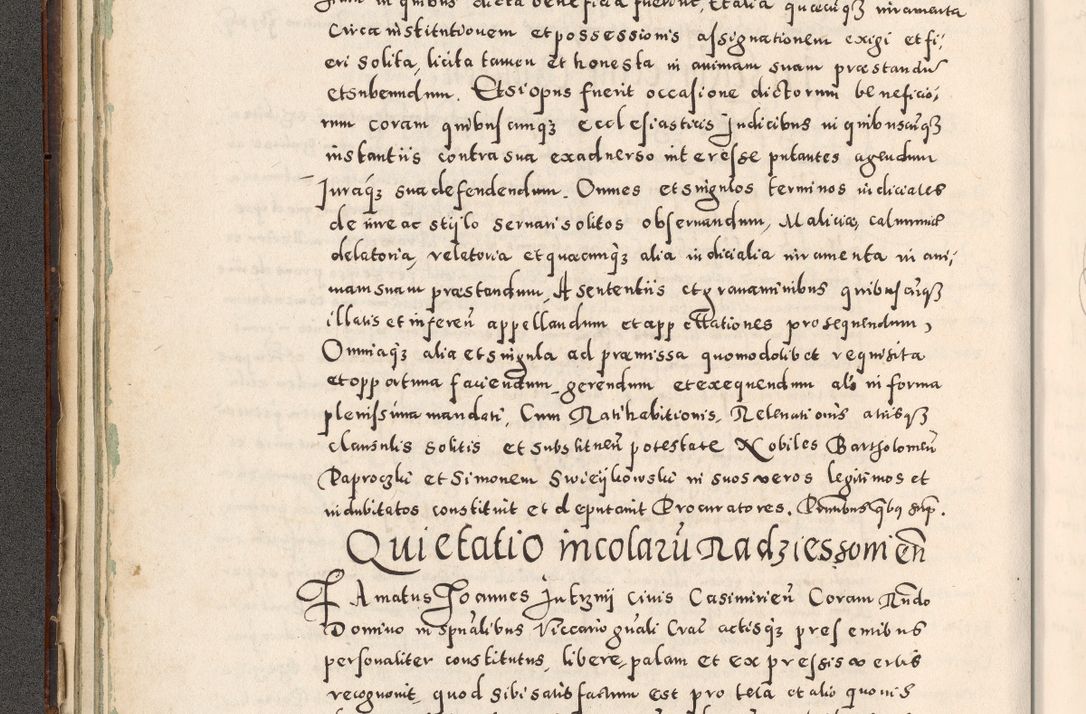 in quibus dicta beneficia fuerint, et alia quæcunqz iuramenta
Circa institutionem et possessionis assignationem exigi et fi-
eri solita, licita tamen et honesta in animam suam præstandũ
et subeundum. Et si opus fuerit occasione dictorum beneficio,
rum coram quibuscunqz ecclesiasticis Iudicibus in quibuscũqz
instantiis contra sua ex aduerso interesse putantes agendum
Iuraqz sua defendendum. Omnes et singulos terminos iudiciales
de iure ac stijlo seruari solitos obseruandum, Maliciæ, calumniæ
delatoria, veletoria et quæcunqz alia iudicialia iuramenta in ani,
mam suam præstandum, A sententiis et grauaminibus quibuscũqz
illatis et inferen̄ appellandum et appellationes prosequendum,
Omniaqz alia et singula ad præmissa quomodolibet requisita
et opportuna faciendum, gerendum et exequendum als̄ in forma
plenissima mandati, Cum Ratihabitionis, Releuationis aliisqz
clausulis solitis et substituen̄ potestate Nobiles Bartholomeũ
Paproczki et Simonem Swieijkowski in suos veros legitimos et
indubitatos constituit et deputauit Procuratores. qbus sup̄.
Quietatio incolarũ Nadziessonien̄
Famatus Ioannes Iutrznij ciuis Casimirien̄ Coram Rn̄do
Domino in sp̄ualibus Viccario gn̄ali Crac̄ actisqz presentibus
personaliter constitutus, libere, palam et ex pressis verbis
recognouit, quod sibi satisfactum est pro tela et alio quouis